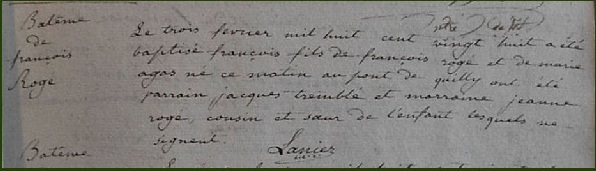 Batême
de
françois
Roge
Le trois fevrier mil huit cent vingt huit a été
baptisé françois fils de françois roge et de marie
agas né ce matin au pont de quilly ont été
parrain jacques tremblé et marraine jeanne
roge, cousin et sœur de l'enfant lesquels ne
signent.
Lanier
Batême